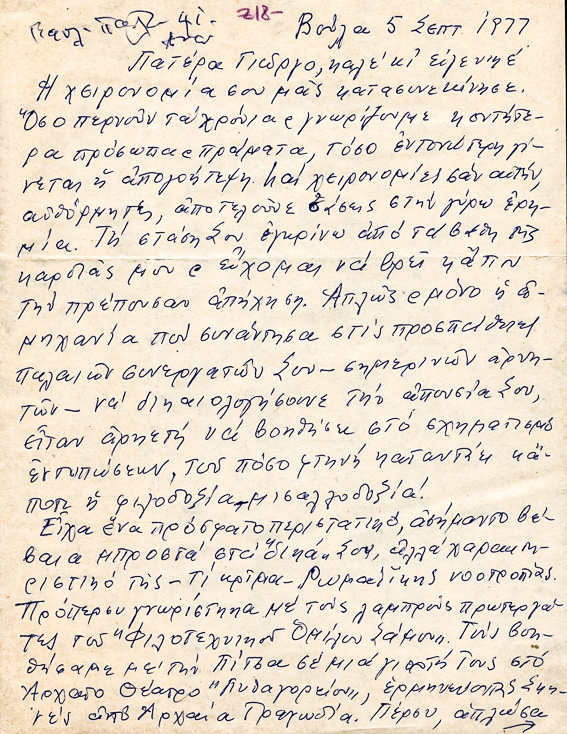 218-
Βούλα 5 Σεπτ. 1977
Πατέρα Γιώργο, καλέ κι' εὐγενικέ
Ἡ χειρονομία σου μᾶς κατασυνεκίνησε.
Ὅσο περνοῦν τὰ χρόνια ϛ γνωρίζουμε κοντήτε-
ρα πρόσωπα ϛ πράματα, τόσο ἐντονώτερη γί-
νεται ἡ ἀπογοήτεψη. Καὶ χειρονομίες σὰν αὐτήν,
αὐθόρμητες, ἀποτελοῦνε ὀάσεις στὴν γύρω ἐρη-
μία. Τὴ στάση Σου ἐγκρίνω ἀπὸ τὰ βάθη τῆς
καρδιᾶς μου ϛ εὔχομαι νὰ βρεῖ κἄπου
τὴν πρέπουσαν ἀπήχηση. Ἁπλῶς ϛ μόνο ἡ ἀ-
μηχανία ποὺ συνάντησα στὶς προσπάθειες
παλαιῶν συνεργατῶν Σου - σημερινῶν ἀρνη-
τῶν - νὰ δικαιολογήσουνε τὴν ἀπουσία Σου,
εἶταν ἀρκετὴ νὰ βοηθήσει στὸ σχηματισμὸ
ἐντυπώσεων, τοῦ πόσο φτηνὴ καταντάει κά-
ποτε ἡ φιλοδοξία, μισαλλοδοξία!
Εἶχα ἕνα πρόσφατο περιστατικό, ἀσήμαντο βέ-
βαια μπροστὰ στὰ "δικά" Σου, ἀλλὰ χαρακτη-
ριστικὸ τῆς - τί κρῖμα - Ρωμαίϊκης νοοτροπίας.
Πρόπερσυ γνωρίστηκα μὲ τοὺς λαμπροὺς πρωτεργά-
τες τοῦ "Φιλοτεχνικοῦ Ὁμίλου Σάμου". Τοὺς βοη-
θήσαμε μὲ τὴν Πίτσα σὲ μιὰ γιορτή τους στὸ
Ἀρχαῖο Θέατρο "Πυθαγορείου", ἑρμηνεύοντας Σκη-
νὲς ἀπὸ Ἀρχαία Τραγωδία. Πέρσυ, ἁπλώσα